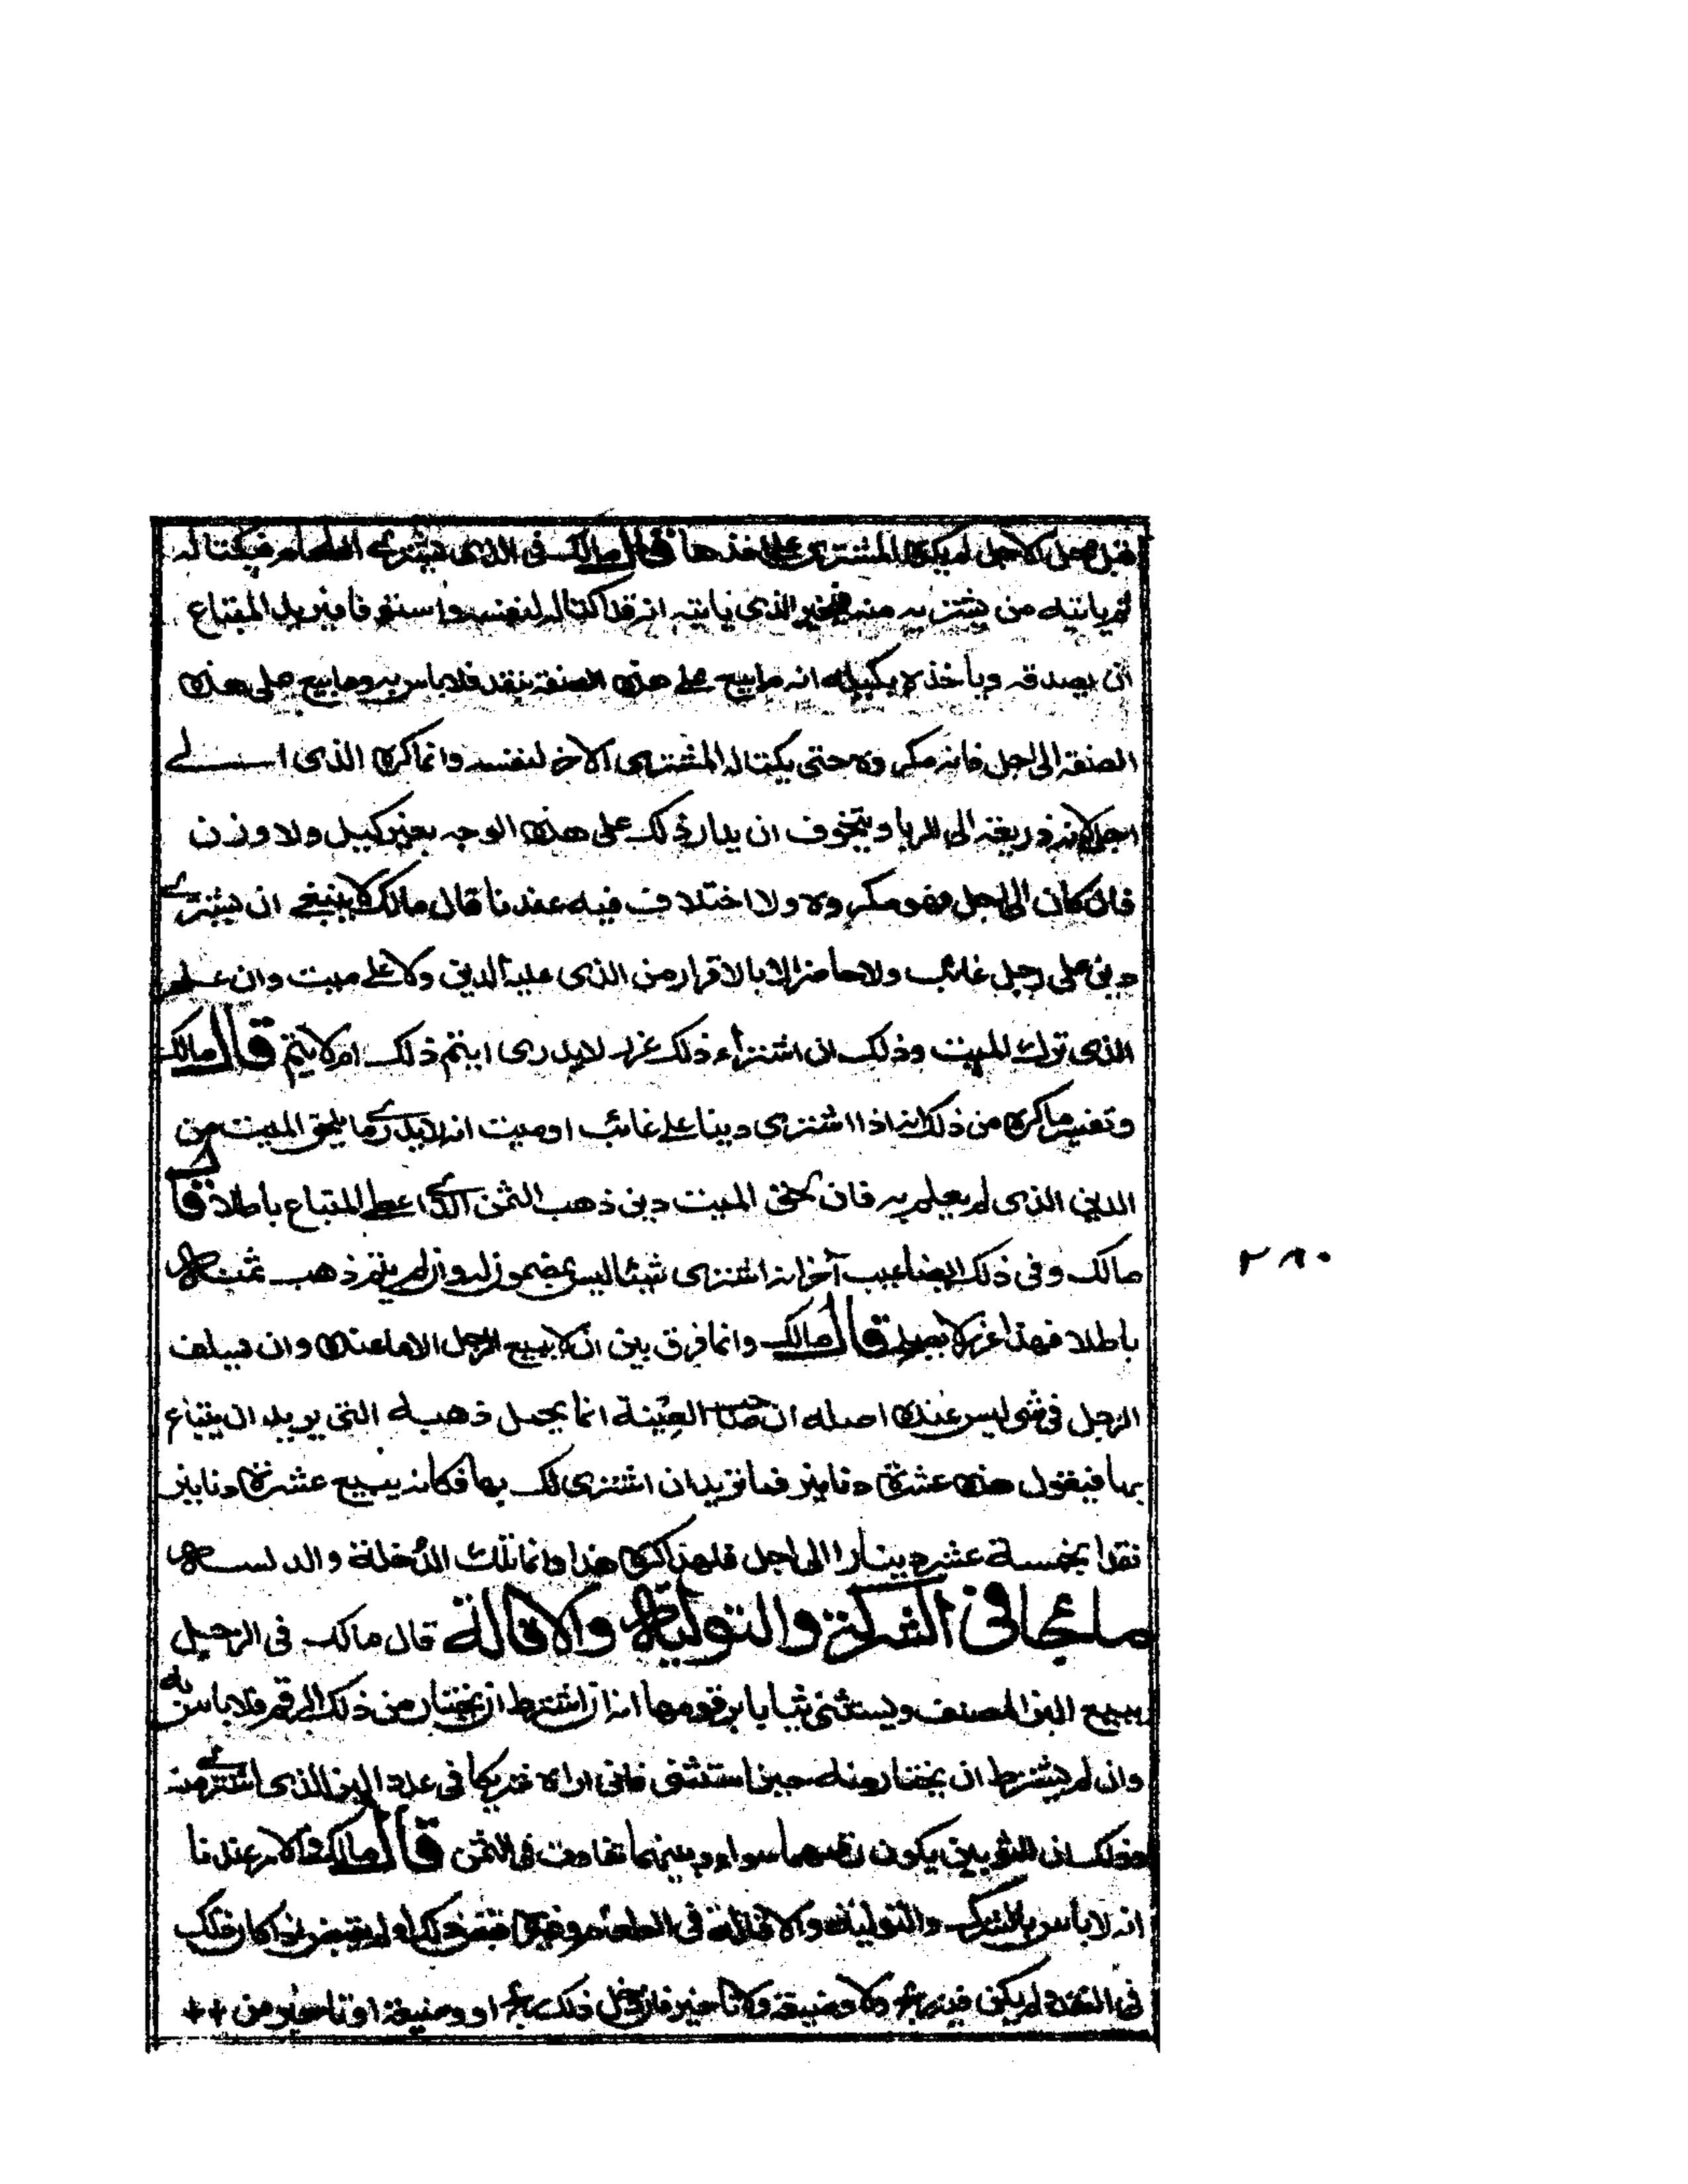 قبل محل الاجل لم يكره المشترى على اخذها قال مالك فى الذى يشترے الطعام فيكتاله
ثم ياتيه من يشتريه منه فيخبر الذى ياتيه انه قد اكتاله لنفسه واستوفا فيريد المبتاع
ان يصدقه وياخذه بكيله انه ما بيع على هذه الصفة بنقد فلا باس به وما بيع على هذه
الصفة الى اجل فانه مكروه حتى يكتاله المشترى الاخر لنفسه وانما كره الذى الے
اجل لانه ذريعة الى الربا ويتخوف ان يدار ذلك على هذه الوجه بغير كيل ولا وزن
فان كان الى اجل فهو مكروه ولا اختلاف فيه عندنا قال مالك لا ينبغے ان يشترے
دين على رجل غائب ولا حاضر الا بالاقرار من الذى عليه الدين ولا على ميت وان علم
الذى ترك الميت وذلك ان اشتراء ذلك غرر لا يدرى ايتم ذلك ام لا يتم قال مالك
وتفسير ما كره من ذلك انه اذا اشترى دينا على غائب او ميت انه لا يدرے ما يلحق الميت من
الدين الذى لم يعلم به فان لحق الميت دين ذهب الثمن الذے اعطے المتباع باطلا قال
مالك وفى ذلك ايضا عيب آخر انه اشترى شيئا ليس بمضمون له وان لم يتم ذهب ثمنه
باطلا فهذا غرر لا يصلح قال مالك وانما فرق بين ان لا يبيع الرجل الا ما عنده وان يسلف
الرجل فى شئ ليس عنده اصله ان صاحب العينة انما يحمل ذهبه التى يريد ان يبتاع
بها فيقول هذه عشرة دنانير فما تريد ان اشترى لك بها فكانه يبيع عشرة دنانير
نقدا بخمسة عشر دينارا الى اجل فلهذا كره هذا وانما تلك الدخلة والدلسة
ما جاء فى الشركة والتولية والاقالة قال مالك فى الرجل
يبيع البز المصنف ويستثنى ثيابا برقومها انه ان اشترط ان يختار من ذلك الرقم فلا باس به
وان لم يشترط ان يختار منه حين استثنى فانى اراه شريكا فى عدد البز الذى اشترے منه
وذلك ان الثوبين يكون رقمهما سواء وبينهما تفاوت فى الثمن قال مالك والامر عندنا
انه لا باس بالشرك والتولية والاقالة فى الطعام وغيره قبض ذلك او لم يقبض اذا كان ذلك
فى النقد ولم يكن فيه ربح ولا وضيعة ولا تاخير فان دخل ذلك ربح او وضيعة او تاخير من
٢٨٠